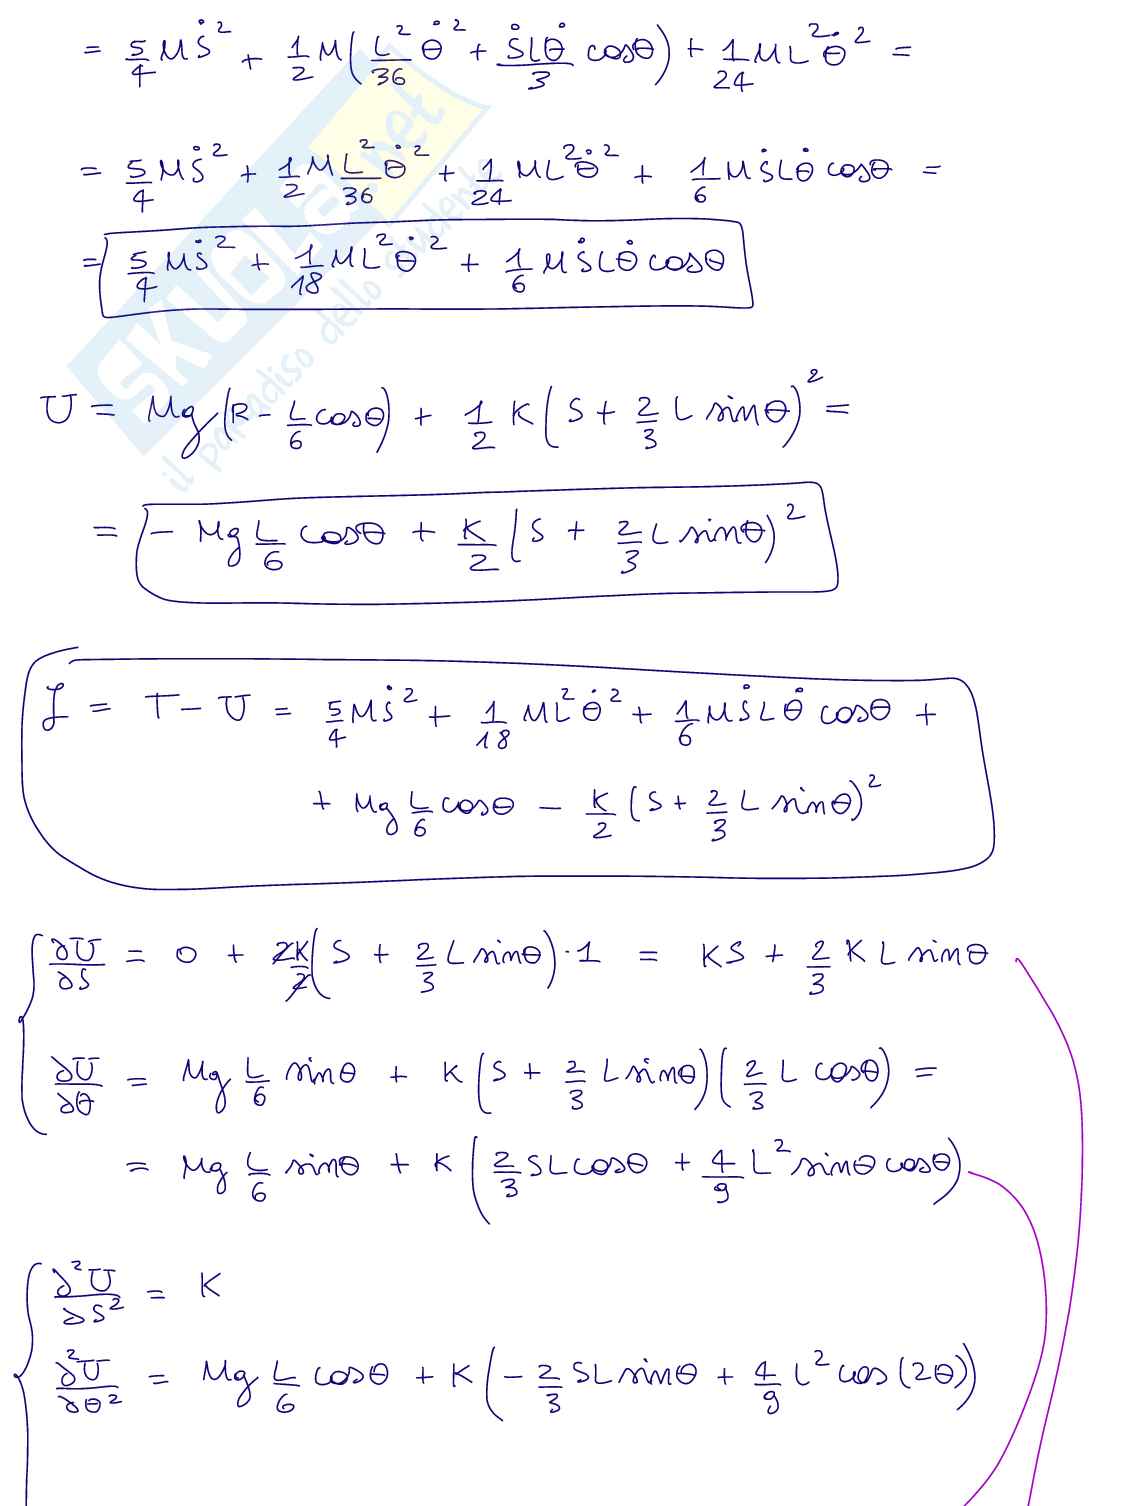 = 5/4 MṠ² + 1/2 M(L²/36 θ̇² + ṠLθ̇/3 cosθ) + 1/24 ML²θ̇² =
= 5/4 MṠ² + 1/2 M L²/36 θ̇² + 1/24 ML²θ̇² + 1/6 MṠLθ̇ cosθ =
= 5/4 MṠ² + 1/18 ML²θ̇² + 1/6 MṠLθ̇ cosθ
U = Mg(R - L/6 cosθ) + 1/2 K(S + 2/3 L sinθ)² =
= - Mg L/6 cosθ + K/2 (S + 2/3 L sinθ)²
ℒ = T - U = 5/4 MṠ² + 1/18 ML²θ̇² + 1/6 MṠLθ̇ cosθ +
+ Mg L/6 cosθ - K/2 (S + 2/3 L sinθ)²
∂U/∂S = 0 + 2K/2 (S + 2/3 L sinθ)·1 = KS + 2/3 K L sinθ
∂U/∂θ = Mg L/6 sinθ + K(S + 2/3 L sinθ)(2/3 L cosθ) =
= Mg L/6 sinθ + K(2/3 SL cosθ + 4/9 L² sinθ cosθ)
∂²U/∂S² = K
∂²U/∂θ² = Mg L/6 cosθ + K(- 2/3 SL sinθ + 4/9 L² cos(2θ))
SKUOLA.net
il paradiso dello studente